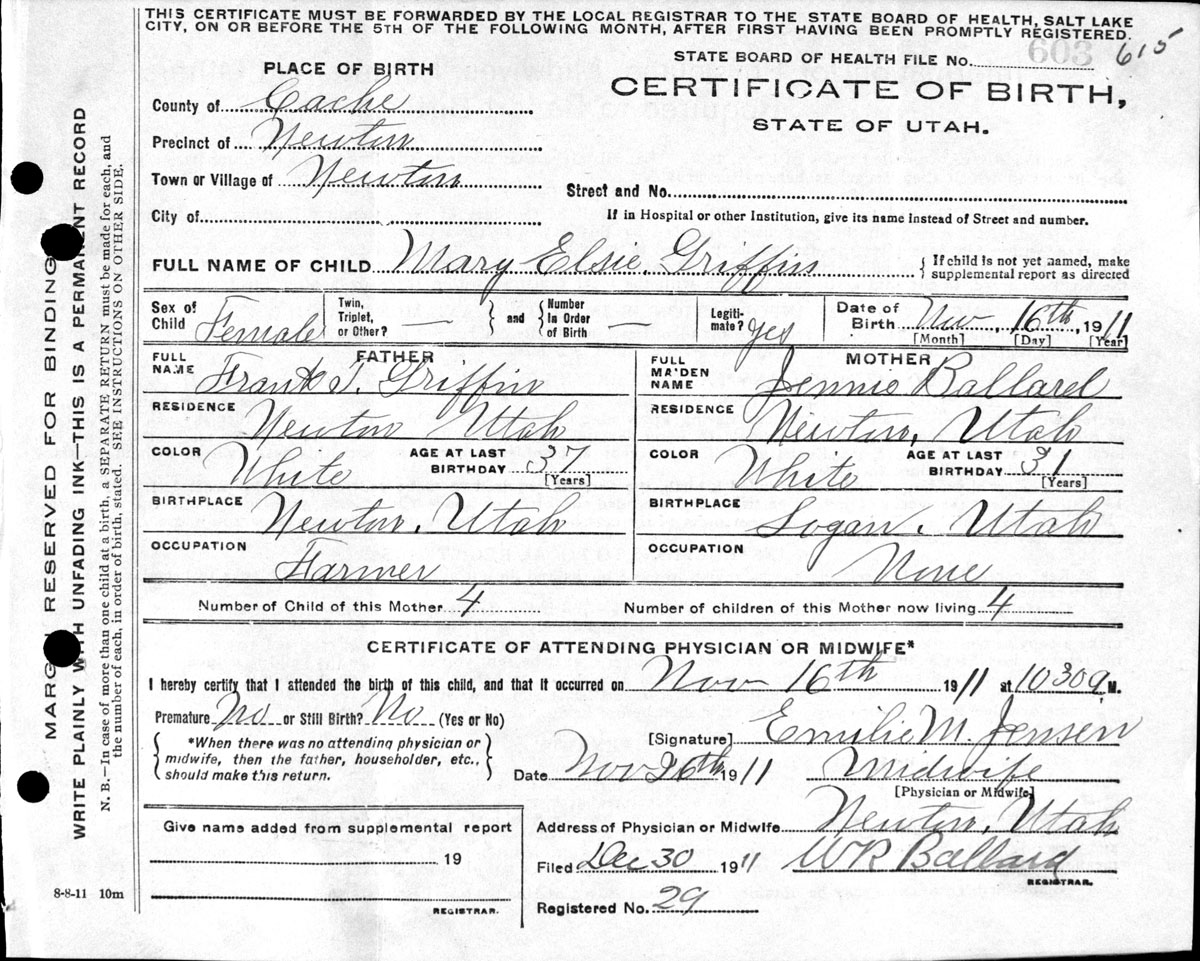 THIS CERTIFICATE MUST BE FORWARDED BY THE LOCAL REGISTRAR TO THE STATE BOARD OF HEALTH, SALT LAKE
CITY, ON OR BEFORE THE 5TH OF THE FOLLOWING MONTH, AFTER FIRST HAVING BEEN PROMPTLY REGISTERED.
STATE BOARD OF HEALTH FILE No. 603 615
CERTIFICATE OF BIRTH,
STATE OF UTAH.
PLACE OF BIRTH
County of Cache
Precinct of Newton
Town or Village of Newton
Street and No.
City of
If in Hospital or other Institution, give its name instead of Street and number.
FULL NAME OF CHILD Mary Elsie Griffin
If child is not yet named, make
supplemental report as directed
Sex of Child Female
Twin, Triplet, or Other? —
and
Number in Order of Birth —
Legiti-mate? Yes
Date of Birth Nov, 16th, 1911
[Month] [Day] [Year]
FATHER
FULL NAME Frank J. Griffin
RESIDENCE Newton Utah
COLOR White
AGE AT LAST BIRTHDAY 37
[Years]
BIRTHPLACE Newton, Utah
OCCUPATION Farmer
MOTHER
FULL MAIDEN NAME Jennie Ballard
RESIDENCE Newton, Utah
COLOR White
AGE AT LAST BIRTHDAY 31
[Years]
BIRTHPLACE Logan, Utah
OCCUPATION None
Number of Child of this Mother 4
Number of children of this Mother now living 4
CERTIFICATE OF ATTENDING PHYSICIAN OR MIDWIFE*
I hereby certify that I attended the birth of this child, and that it occurred on Nov 16th 1911 at 10 30 a M.
Premature No or Still Birth? No (Yes or No)
*When there was no attending physician or
midwife, then the father, householder, etc.,
should make this return.
[Signature] Emilie M. Jensen
Date Nov 26th 1911 Midwife
[Physician or Midwife]
Address of Physician or Midwife Newton, Utah
Filed Dec 30 1911 W R Ballard
REGISTRAR.
Registered No. 29
Give name added from supplemental report
19
REGISTRAR.
8-8-11 10m
MARGIN RESERVED FOR BINDING
WRITE PLAINLY WITH UNFADING INK—THIS IS A PERMANENT RECORD
N. B.—In case of more than one child at a birth, a SEPARATE RETURN must be made for each, and
the number of each, in order of birth, stated. SEE INSTRUCTIONS ON OTHER SIDE.